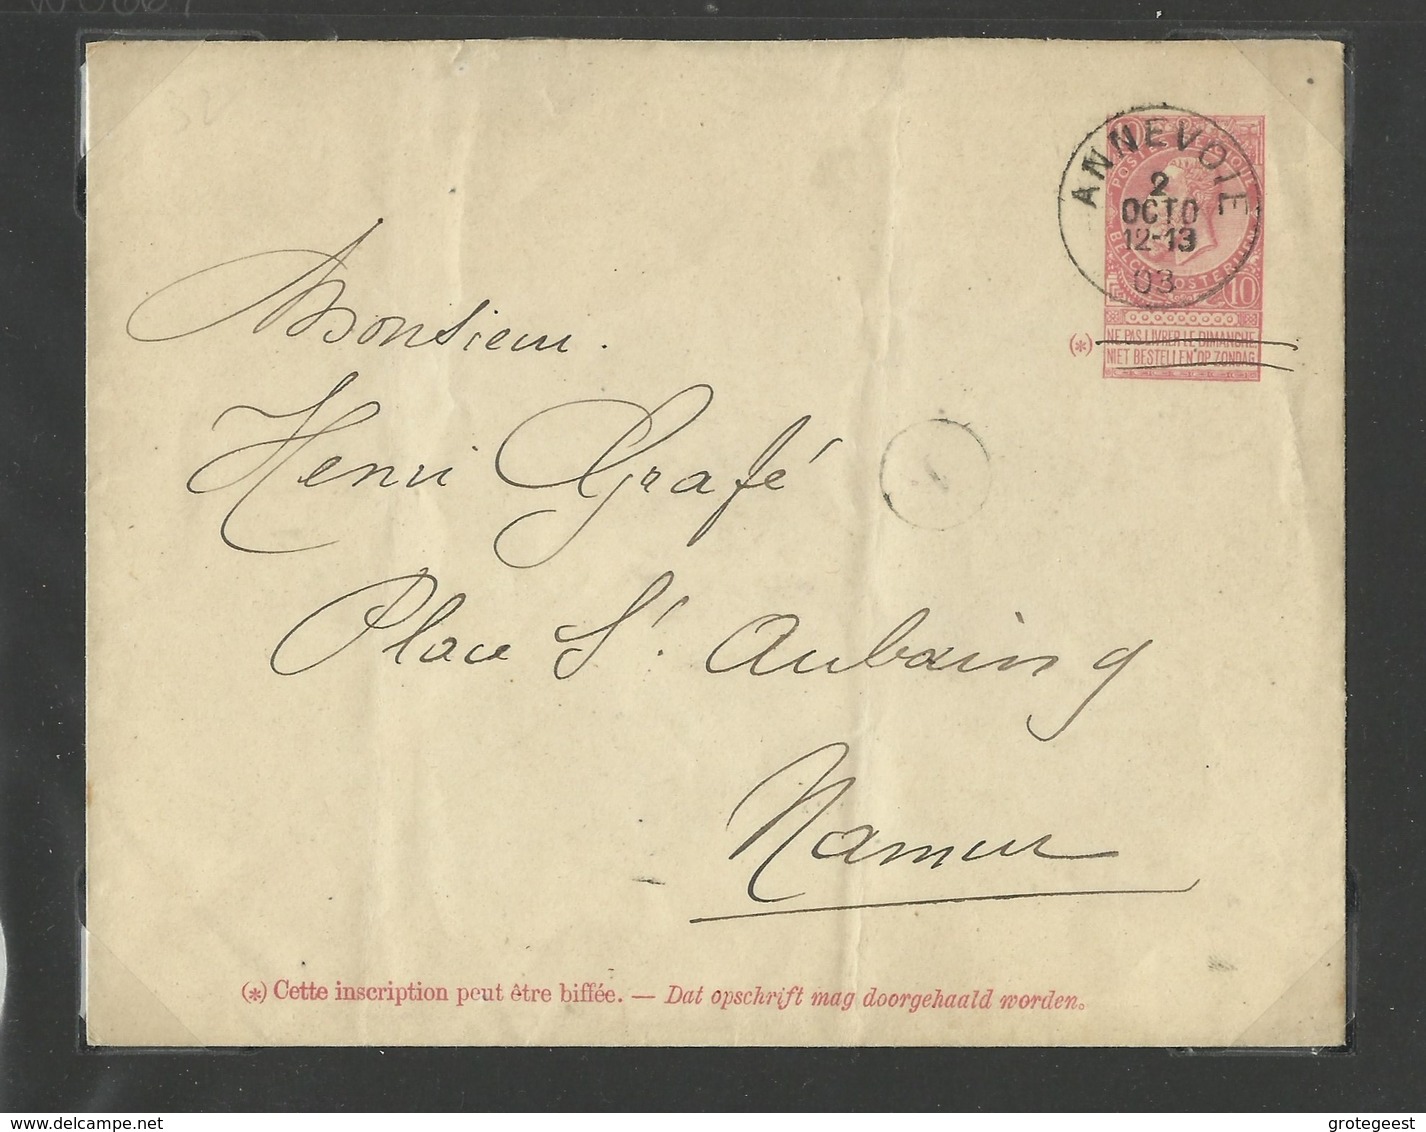 ANNEVOIE
2
OCTO
12-13
03
10
(*) NE PAS LIVRER LE DIMANCHE.
NIET BESTELLEN OP ZONDAG
Monsieur.
Henri Grafé
Place St. Aubaing
Namur
(*) Cette inscription peut être biffée. — Dat opschrift mag doorgehaald worden.
www.delcampe.net
grotegeest